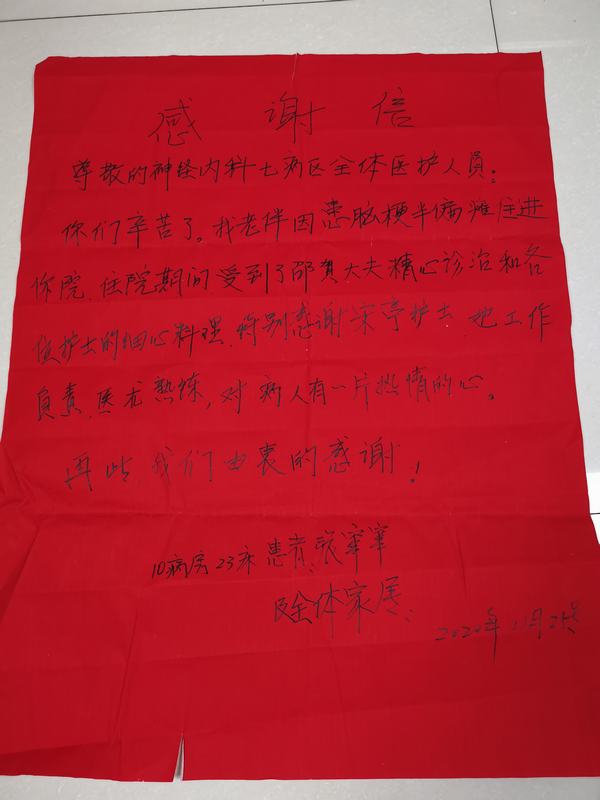 感谢信
尊敬的神经内科七病区全体医护人员:
你们辛苦了。我老伴因患脑梗半偏瘫住进
你院.住院期间受到了邵贺大夫精心诊治和各
位护士的细心料理.特别感谢宋亭护士.她工作
负责.医术熟练,对病人有一片热情的心。
再此.我们由衷的感谢!
10病房23床患者:张
全体家属:
2020年11月2号